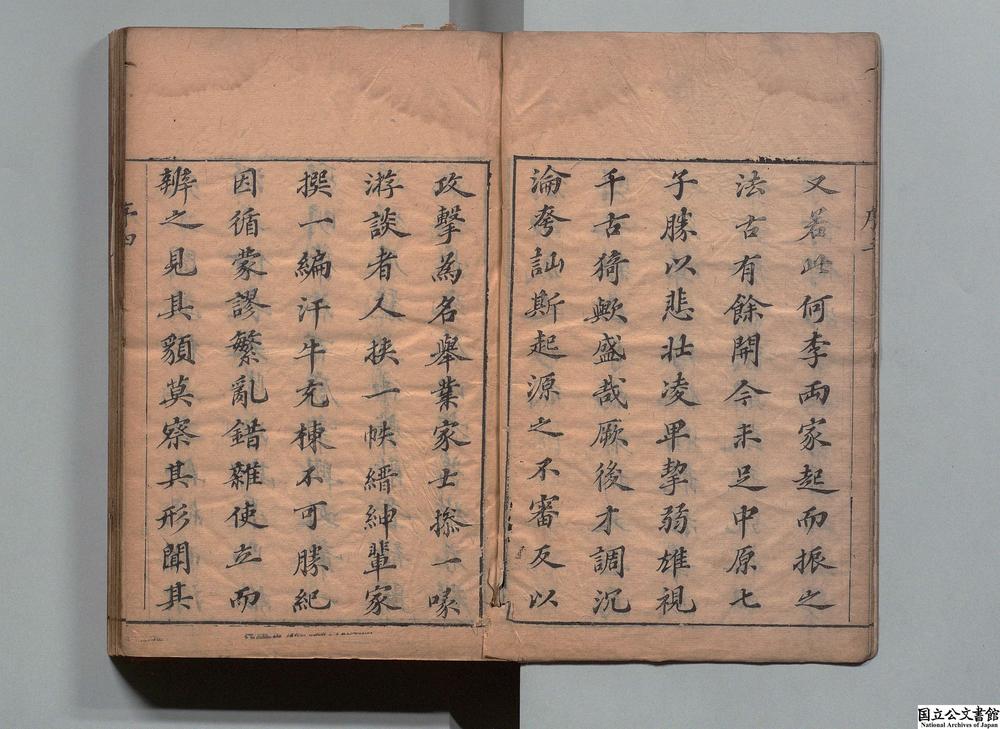 又若此何李兩家起而振之
法古有餘開今未足中原七
子勝以悲壯凌卑摯弱雄視
千古猗歟盛哉厥後才調沉
淪夸訕斯起源之不審反以
政擊為名舉業家士操一喙
游談者人挾一帙縉紳輩家
撰一編汗牛充棟不可勝紀
因循蒙謬繁亂錯雜使立而
辨之見其貌莫察其形聞其
序四
国立公文書館
National Archives of Japan